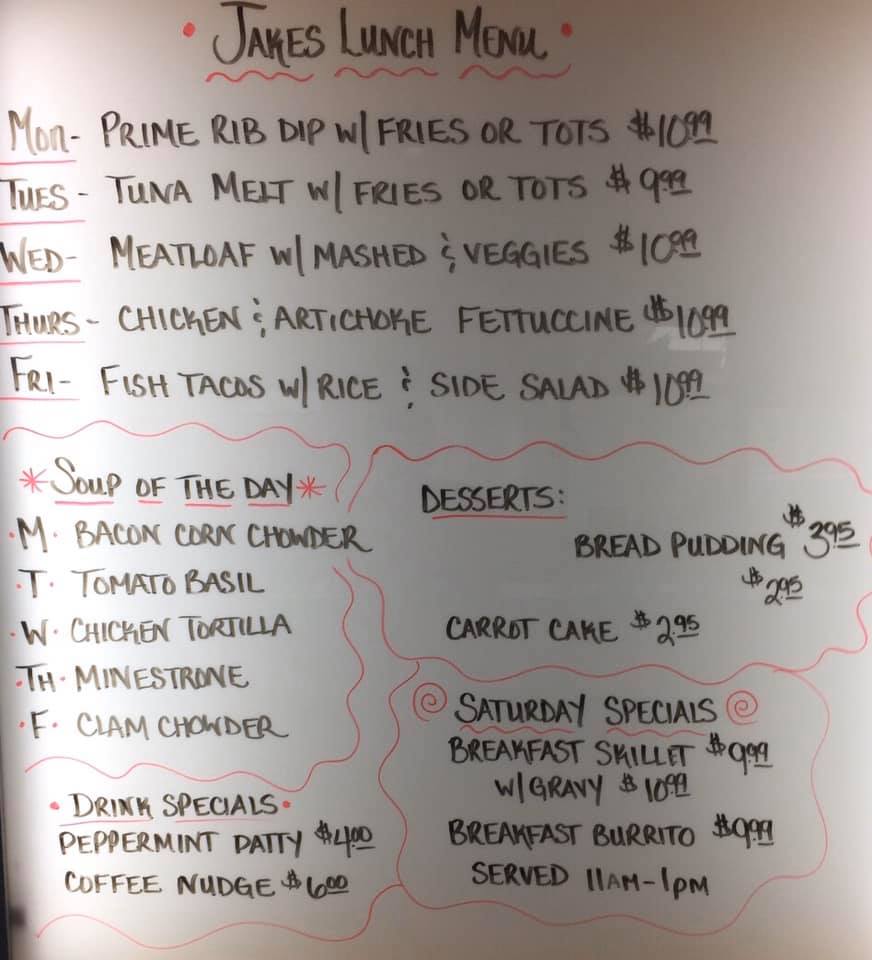 • JAKES LUNCH MENU •
MON- PRIME RIB DIP W/ FRIES OR TOTS $10.99
TUES - TUNA MELT W/ FRIES OR TOTS $9.99
WED- MEATLOAF W/ MASHED & VEGGIES $10.99
THURS - CHICKEN & ARTICHOKE FETTUCCINE $10.99
FRI- FISH TACOS W/ RICE & SIDE SALAD $10.99
* SOUP OF THE DAY *
• M • BACON CORN CHOWDER
• T • TOMATO BASIL
• W • CHICKEN TORTILLA
• TH • MINESTRONE
• F • CLAM CHOWDER
• DRINK SPECIALS •
PEPPERMINT PATTY $4.00
COFFEE NUDGE $6.00
DESSERTS:
BREAD PUDDING $3.95
$2.95
CARROT CAKE $2.95
SATURDAY SPECIALS
BREAKFAST SKILLET $9.99
W/ GRAVY $10.99
BREAKFAST BURRITO $9.99
SERVED 11AM-1PM